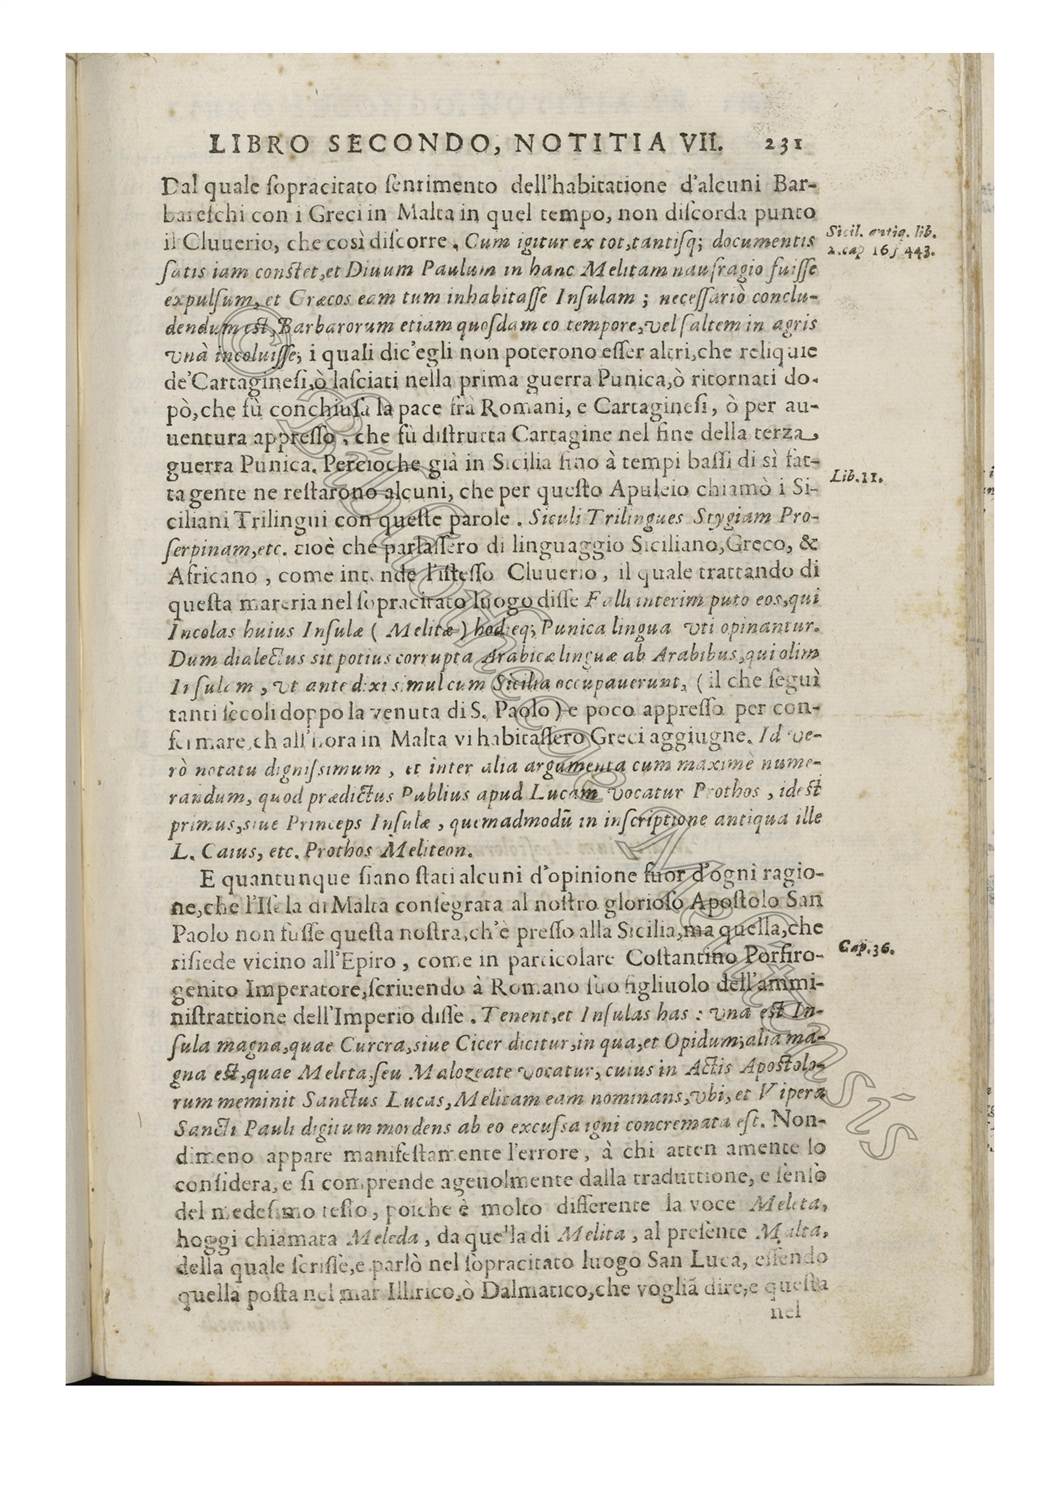 LIBRO SECONDO, NOTITIA VII. 231
Dal quale ſopracitato ſentimento dell'habitatione d'alcuni Bar-
bareſchi con i Greci in Malta in quel tempo, non diſcorda punto
il Cluuerio, che così diſcorre. Cum igitur ex tot, tantiſq; documentis
ſatis iam conſtet, et Diuum Paulum in hanc Melitam naufragio fuiſſe
expulſum, et Græcos eam tum inhabitaſſe Inſulam; neceſſariò conclu-
dendum eſt, Barbarorum etiam quoſdam eo tempore, vel ſaltem in agris
vnà incoluiſſe; i quali dic'egli non poterono eſſer altri, che reliquie
de'Cartagineſi, ò laſciati nella prima guerra Punica, ò ritornati do-
pò, che fù conchiuſa la pace frà Romani, e Cartagineſi, ò per au-
uentura appreſſo, che fù diſtrutta Cartagine nel fine della terza
guerra Punica. Percioche già in Sicilia fino à tempi baſſi di sì fat-
ta gente ne reſtarono alcuni, che per queſto Apuleio chiamò i Si-
ciliani Trilingui con queſte parole. Siculi Trilingues Stygiam Pro-
ſerpinam, etc. cioè che parlaſſero di linguaggio Siciliano, Greco, &
Africano, come intende l'iſteſſo Cluuerio, il quale trattando di
queſta materia nel ſopracitato luogo diſſe Falli interim puto eos, qui
Incolas huius Inſulæ ( Melitæ ) hodieq; Punica lingua vti opinantur.
Dum dialectus sit potius corrupta Arabicæ linguæ ab Arabibus, qui olim
Inſulam, vt ante dixi simul cum Sicilia occupauerunt, ( il che ſeguì
tanti ſecoli doppo la venuta di S. Paolo ) e poco appreſſo per con-
fermare, ch all'hora in Malta vi habitaſſero Greci aggiugne. Id ve-
rò notatu digniſsimum, et inter alia argumenta cum maximè nume-
randum, quod prædictus Publius apud Lucam vocatur Prothos, ideſt
primus, siue Princeps Inſulæ, quemadmodū in inſcriptione antiqua ille
L. Caius, etc. Prothos Meliteon.
E quantunque ſiano ſtati alcuni d'opinione fuor d'ogni ragio-
ne, che l'Iſola di Malta conſegrata al noſtro glorioſo Apoſtolo San
Paolo non fuſſe queſta noſtra, ch'è preſſo alla Sicilia, ma quella, che
riſiede vicino all'Epiro, come in particolare Coſtantino Porfiro-
genito Imperatore, ſcriuendo à Romano ſuo figliuolo dell'ammi-
niſtrattione dell'Imperio diſſe. Tenent, et Inſulas has: vna eſt In-
ſula magna, quae Curcra, siue Cicer dicitur, in qua, et Opidum; alia ma-
gna eſt, quae Meleta, ſeu Malozeate vocatur, cuius in Actis Apoſtolo-
rum meminit Sanctus Lucas, Melitam eam nominans, vbi, et Vipera
Sancti Pauli digitum mordens ab eo excuſsa igni concremata eſt. Non-
dimeno appare manifeſtamente l'errore, à chi atten amente lo
conſidera, e ſi comprende ageuolmente dalla traduttione, e ſenſo
del medeſimo teſto, poiche è molto differente la voce Meleta,
hoggi chiamata Meleda, da quella di Melita, al preſente Malta,
della quale ſcriſſe, e parlò nel ſopracitato luogo San Luca, eſſendo
quella poſta nel mar Illirico, ò Dalmatico, che vogliā dire, e queſta
nel
Sicil. antiq. lib.
2. cap 16 f 443.
Lib. 11.
Cap. 36.
© Bibliotheca Alexandrina